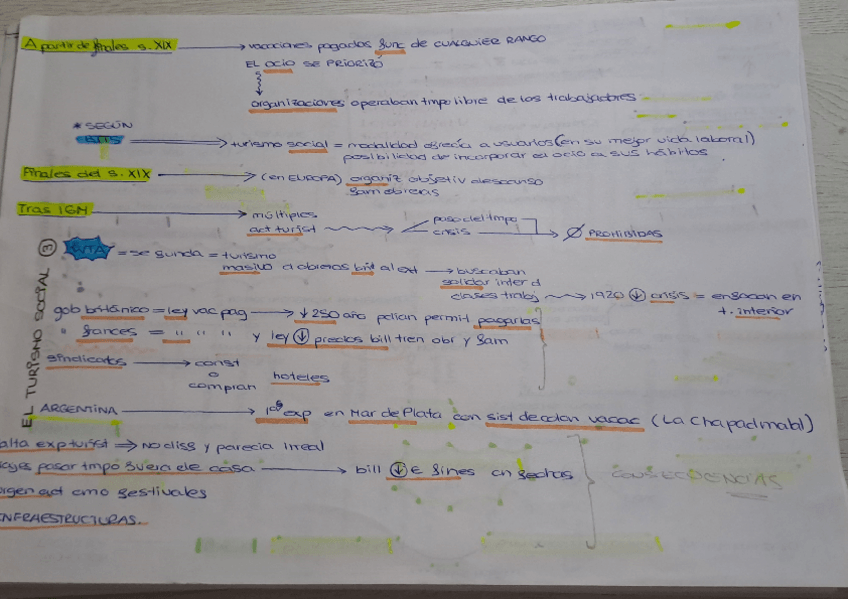 A partir de finales s. XIX → vacaciones pagadas func de CUALQUIER RANGO
EL OCIO SE PRIORIZÓ
organizaciones operaban tmpo libre de los trabajadores
* SEGÚN
BITS ⇒ turismo social = modalidad ofrecía a usuarios (en su mejor vida laboral)
posibilidad de incorporar el ocio a sus hábitos
Finales del s. XIX → (en EUROPA) organiz objetiv descanso
fam obreras
Tras IGM → múltiples
act turist
paso del tmpo
crisis → Ø PROHIBIDAS
EL TURISMO SOCIAL ③
= se funda = turismo
masivo a obreras brit al ext → buscaban
solidar inter d
clases trabj 1920 ↓ crisis = enfocan en
t. interior
gob británico = ley vac pag → ↓ 250 año pedían permit pagarlas
" frances = " " " y ley ↓ precios bill tren obr y fam
sindicatos → const
o
compran hoteles
ARGENTINA → 1ª exp en Mar de Plata con sist de colon vacac (La Chapadmabl)
alta exp turist ⇒ No diss y parecia irreal
pasar tmpo fuera de casa → bill ↓ € fines en fechas
CONSECUENCIAS
rigen act cmo festivales
INFRAESTRUCTURAS.